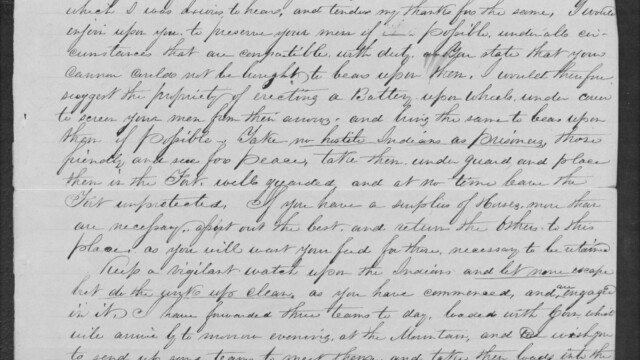 which I was desirous to hear, and tender my thanks for the same, I would
enjoin upon you, to preserve your men if possible, under all cir-
cumstances that are compatible with duty. you state that your
cannon could not be brought to bear upon them. I would therefore
suggest the propriety of erecting a Battery upon wheels, under cover
to screen your men from their arrows; and bring the same to bear upon
them if possible – Take no hostile Indians as prisoners, those
friendly and sue for peace, take them under guard and place
them in the Fort, well guarded, and at no time leave the
Fort unprotected. If you have a surplus of Horses, more than
are necessary, sort out the best, and return the others to this
place as you will want your feed for those, necessary to be retained
Keep a vigilant watch upon the Indians and let none escape
but do the work up clean, as you have commenced, and are engaged
in it. I have forwarded three teams to day, loaded with Corn, which
will arrive by to morrow evening, at the Mountain, and wish you
to send up some team to meet them, and take their loads into the